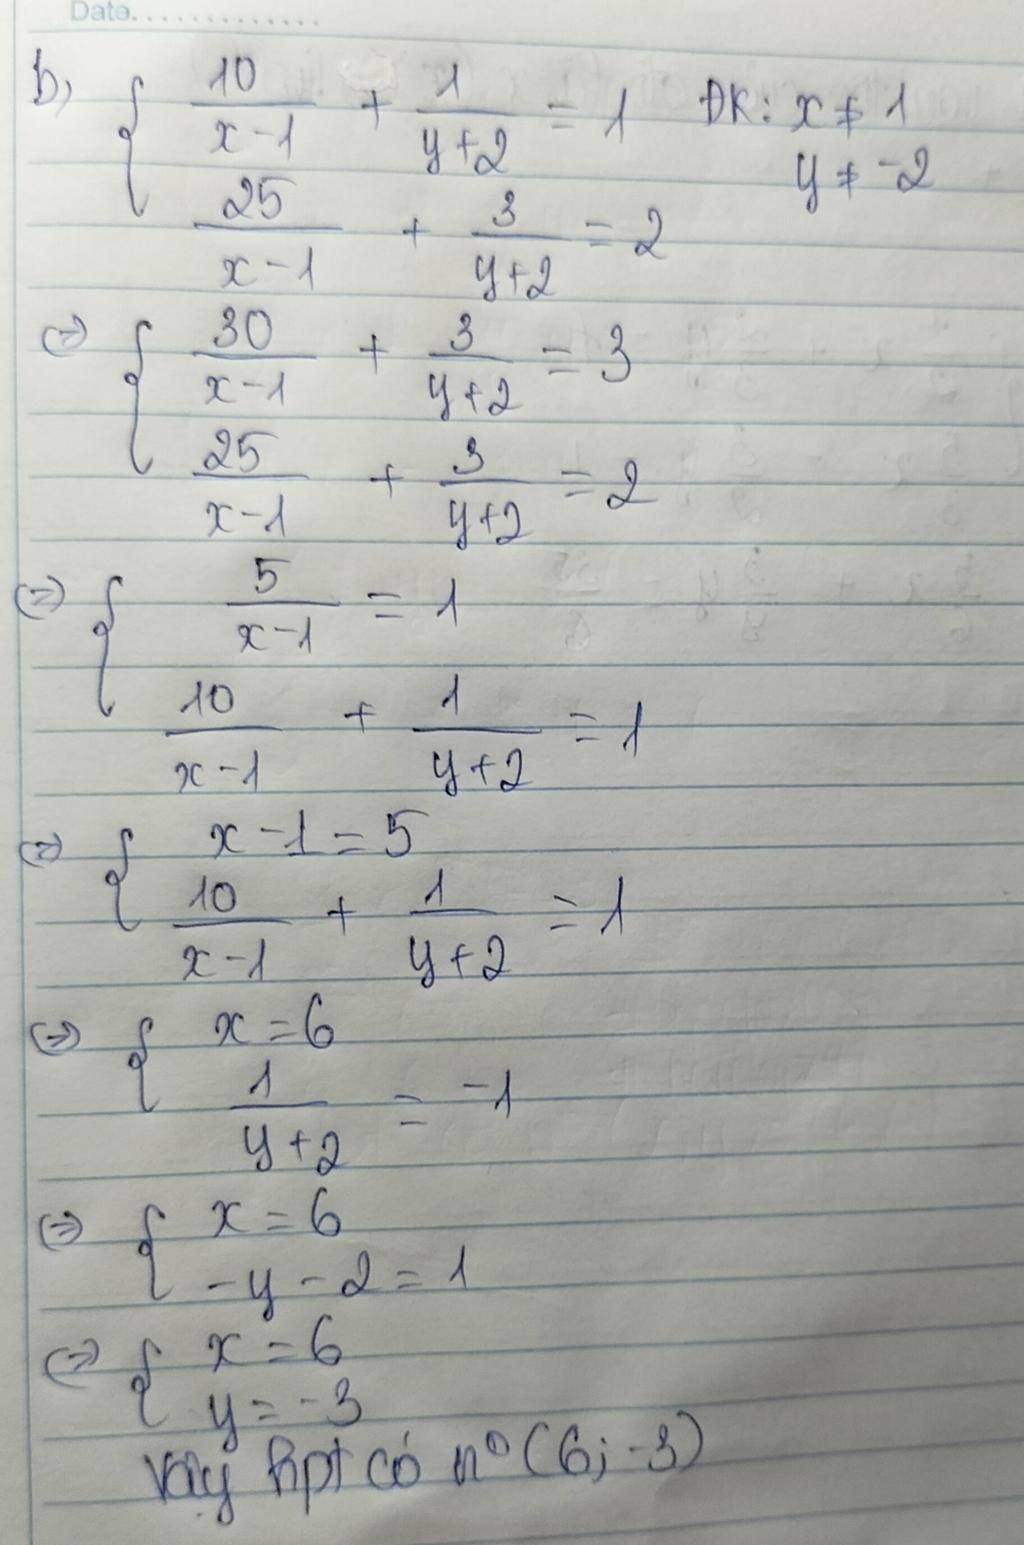 Date..............
b, { 10/(x-1) + 1/(y+2) = 1 ĐK: x ≠ 1
y ≠ -2
25/(x-1) + 3/(y+2) = 2
(=) { 30/(x-1) + 3/(y+2) = 3
25/(x-1) + 3/(y+2) = 2
(=) { 5/(x-1) = 1
10/(x-1) + 1/(y+2) = 1
(=) { x-1 = 5
10/(x-1) + 1/(y+2) = 1
(=) { x = 6
1/(y+2) = -1
(=) { x = 6
-y - 2 = 1
(=) { x = 6
y = -3
Vậy hpt có n° (6; -3)